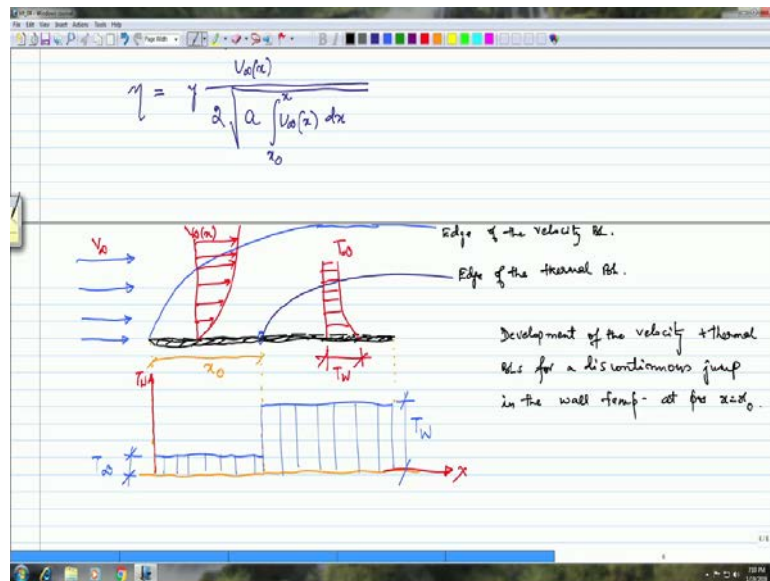 File Edit View Insert Actions Tools Help
Page Width
B I
η = y V∞(x) / 2 √ a ∫ x₀ x V∞(x) dx
V∞
V∞(x)
Edge of the velocity BL.
T∞
Edge of the thermal BL.
Development of the velocity + thermal
BLs for a discontinuous jump
in the wall temp- at x=x₀.
x₀
T_W
T_W
T_W
T∞
x